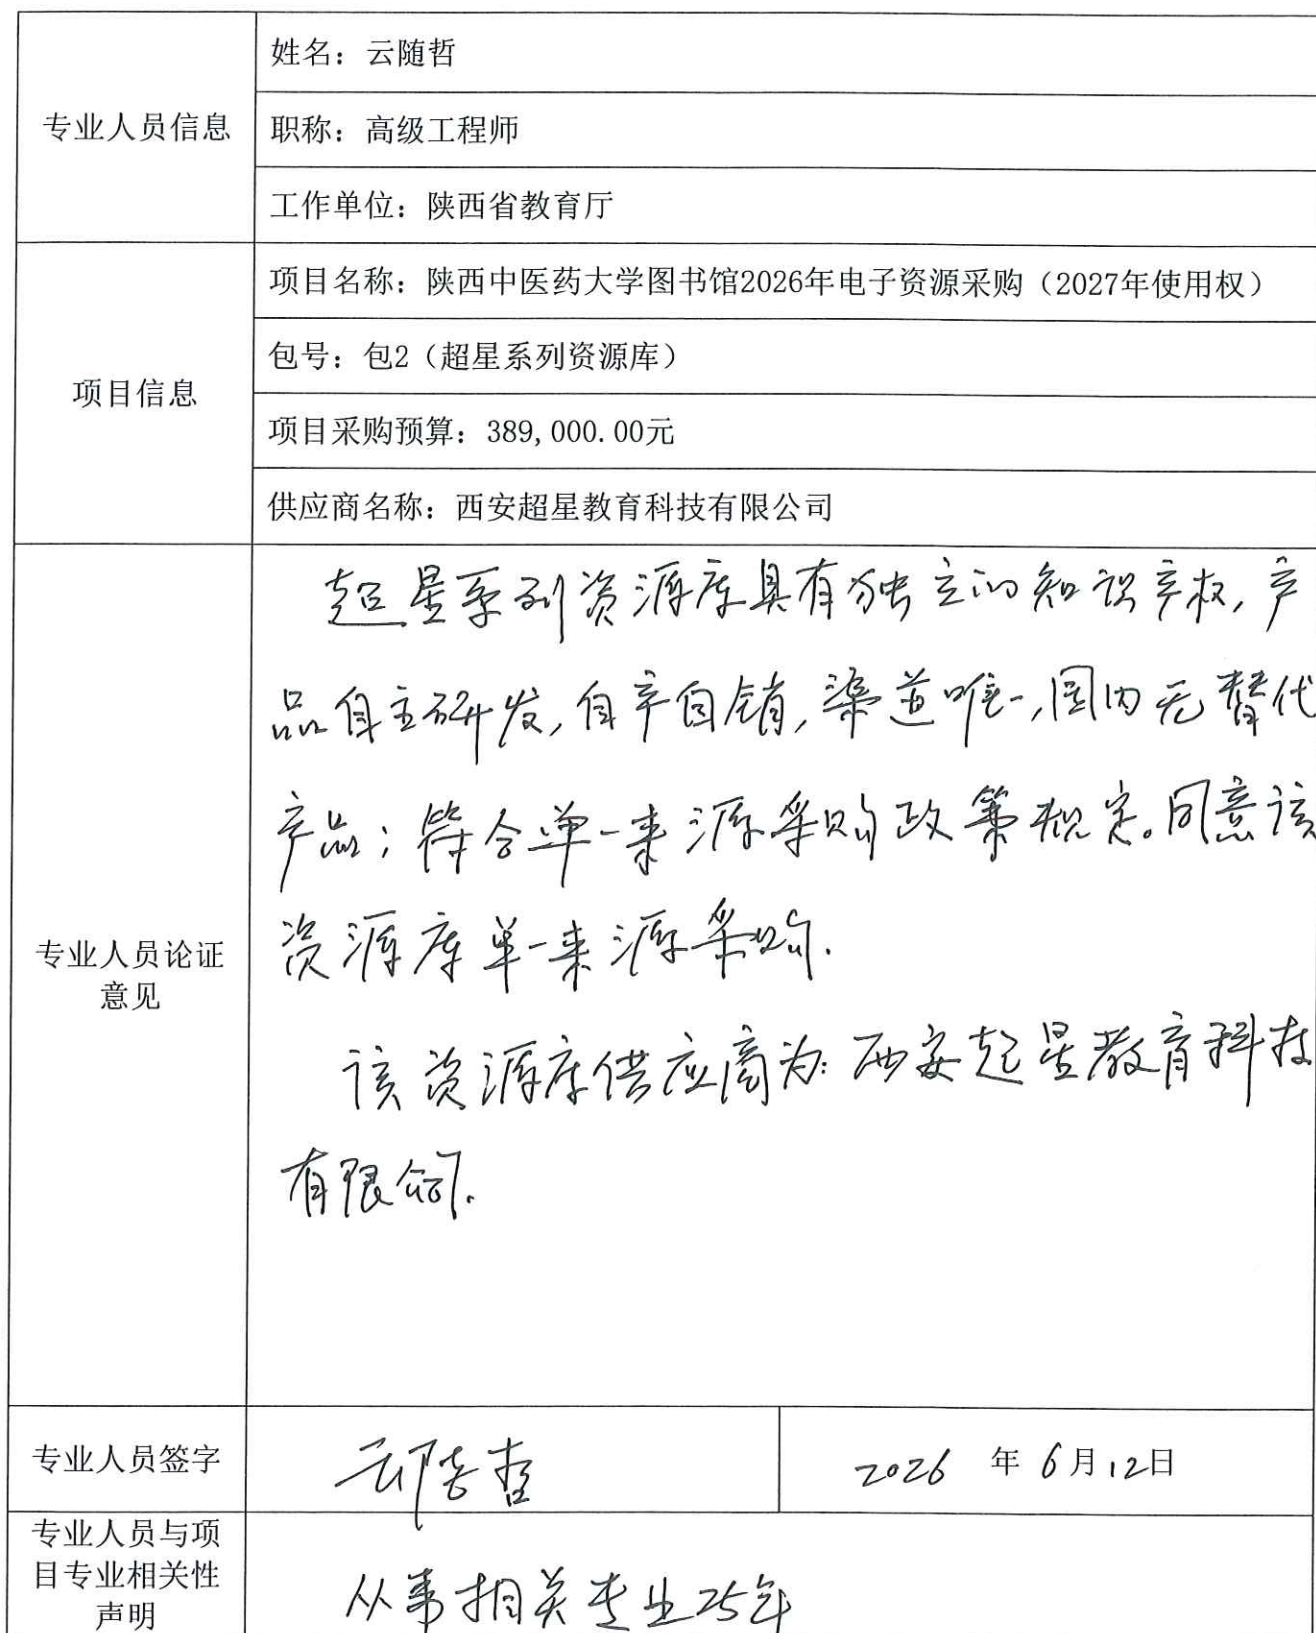 专业人员信息
姓名：云随哲
职称：高级工程师
工作单位：陕西省教育厅
项目信息
项目名称：陕西中医药大学图书馆2026年电子资源采购（2027年使用权）
包号：包2（超星系列资源库）
项目采购预算：389,000.00元
供应商名称：西安超星教育科技有限公司
专业人员论证
意见
超星系列资源库具有独立的知识产权，产
品自主研发，自产自销，渠道唯一，国内无替代
产品；符合单一来源采购政策规定。同意该
资源库单一来源采购.
该资源库供应商为：西安超星教育科技
有限公司.
专业人员签字
云随哲
2026 年 6月12日
专业人员与项
目专业相关性
声明
从事相关专业25年